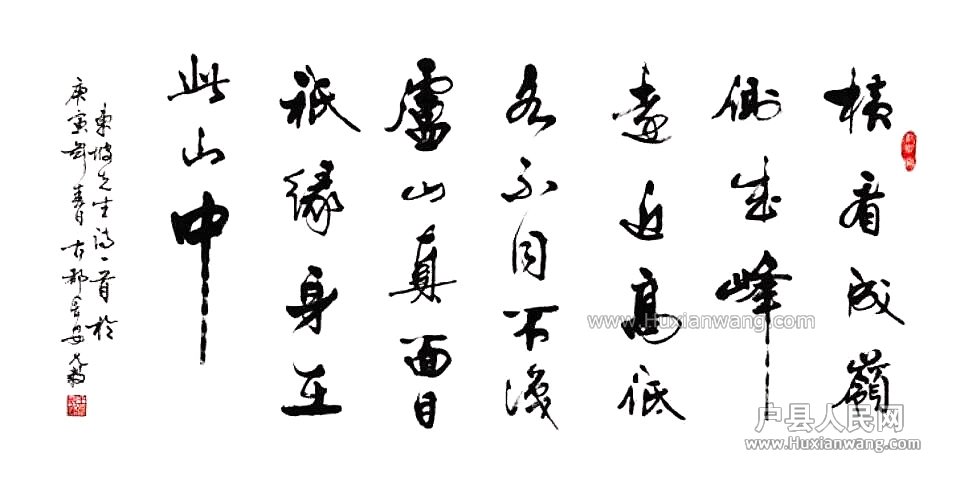 橫看成嶺
側成峰
遠近高低
各不同不識
盧山真面目
祇緣身在
此山中
東坡先生詩一首於
庚寅年春古都長安
www.Huxianwang.com
户县人民网
www.Huxianwang.com